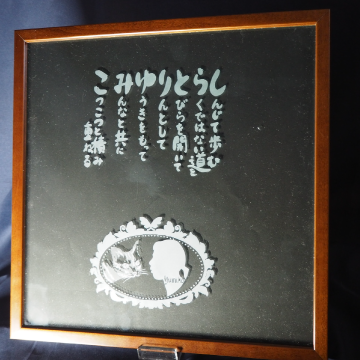 しんじて歩む
らくではない道を
とびらを開いて
りんとして
ゆうきをもって
みんなと共に
こつこつと積み
重ねる